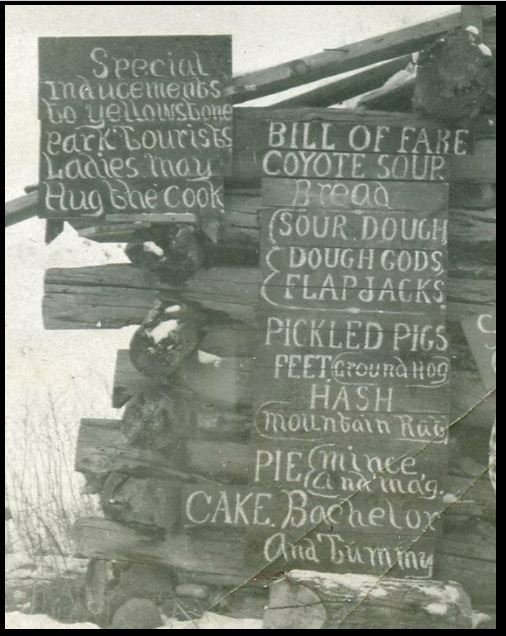 Special
Inducements
to yellowstone
park Tourists
Ladies May
Hug the Cook
BILL OF FARE
COYOTE SOUP
Bread
SOUR DOUGH
DOUGH GODS
FLAPJACKS
PICKLED PIGS
FEET Ground Hog
HASH
Mountain Rat
PIE mince
And
CAKE. Bachelor
And Tummy